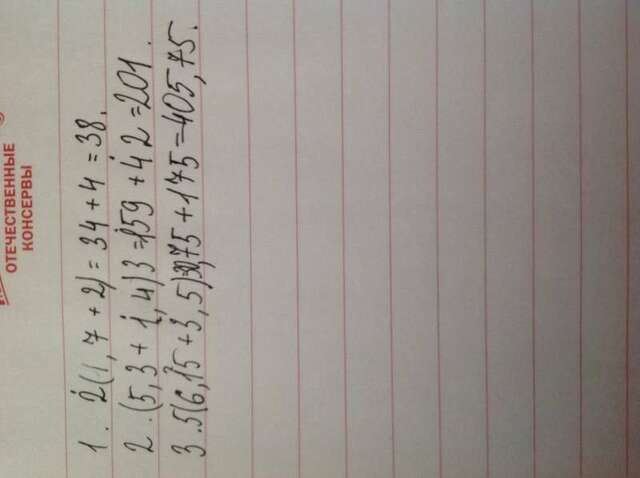 ОТЕЧЕСТВЕННЫЕ
КОНСЕРВЫ
1. 2(1,7+2)=34+4=38.
2.(5,3+1,4)3=159+42=201.
3.5(6,15+3,5)=30,75+175=405,75.